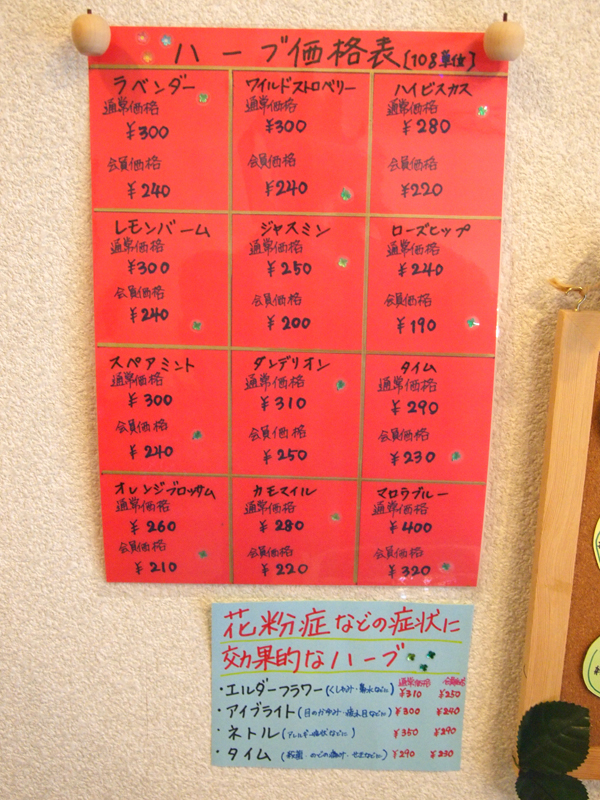 ハーブ価格表[10g単位]
ラベンダー
通常価格
¥300
会員価格
¥240
ワイルドストロベリー
通常価格
¥300
会員価格
¥240
ハイビスカス
通常価格
¥280
会員価格
¥220
レモンバーム
通常価格
¥300
会員価格
¥240
ジャスミン
通常価格
¥250
会員価格
¥200
ローズヒップ
通常価格
¥240
会員価格
¥190
スペアミント
通常価格
¥300
会員価格
¥240
ダンデリオン
通常価格
¥310
会員価格
¥250
タイム
通常価格
¥290
会員価格
¥230
オレンジブロッサム
通常価格
¥260
会員価格
¥210
カモマイル
通常価格
¥280
会員価格
¥220
マロウブルー
通常価格
¥400
会員価格
¥320
花粉症などの症状に
効果的なハーブ
通常価格 会員価格
・エルダーフラワー(くしゃみ・鼻水などに) ¥310 ¥250
・アイブライト(目のかゆみ・疲れ目などに) ¥300 ¥240
・ネトル(アレルギー症状などに) ¥350 ¥290
・タイム(殺菌 のどの痛み・せきなどに) ¥290 ¥230